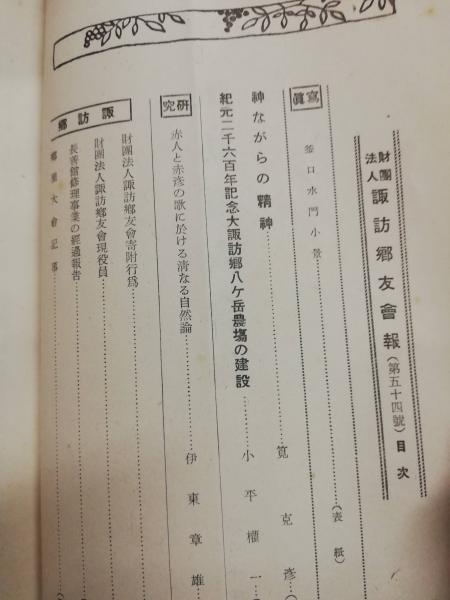 財團法人 諏訪鄕友會報（第五十四號）目次
寫眞
釜口水門小景……（表紙）
神ながらの精神……筧克彦…（
紀元二千六百年記念大諏訪鄕八ケ岳農場の建設……小平權一…（
硏究
赤人と赤彦の歌に於ける淸なる自然論……伊東章雄
諏訪鄕
財團法人諏訪鄕友會寄附行爲……
財團法人諏訪鄕友會現役員……
長善館修理事業の經過報告……
大會記事……（